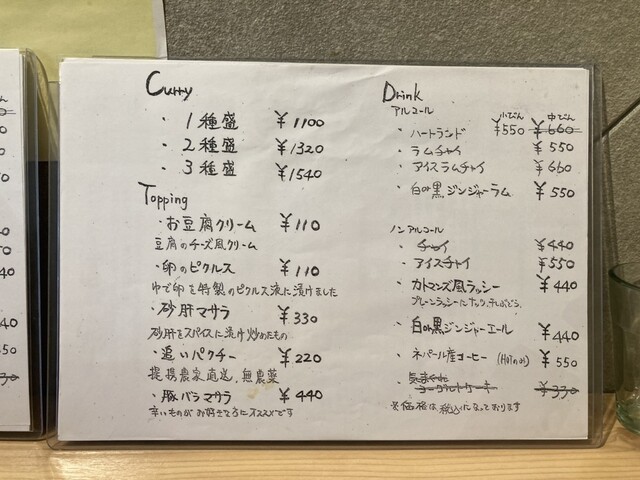 Curry
・1種盛 ¥1100
・2種盛 ¥1320
・3種盛 ¥1540
Topping
・お豆腐クリーム ¥110
豆腐のチーズ風クリーム
・卵のピクルス ¥110
ゆで卵を特製のピクルス液に漬けました
・砂肝マサラ ¥330
砂肝をスパイスに漬け炒めたもの
・追いパクチー ¥220
提携農家直送、無農薬
・豚バラマサラ ¥440
辛いものがお好きな方にオススメです
Drink
アルコール 小びん 中びん
・ハートランド ¥550 ¥660
・ラムチャイ ¥550
・アイスラムチャイ ¥660
・白or黒ジンジャーラム ¥550
ノンアルコール
・チャイ ¥440
・アイスチャイ ¥550
・カトマンズ風ラッシー ¥440
プレーンラッシーにナッツ、干しぶどう
・白or黒ジンジャーエール ¥440
・ネパール産コーヒー (Hotのみ) ¥550
・気まぐれ
ヨーグルトケーキ ¥330
※価格は税込になっております